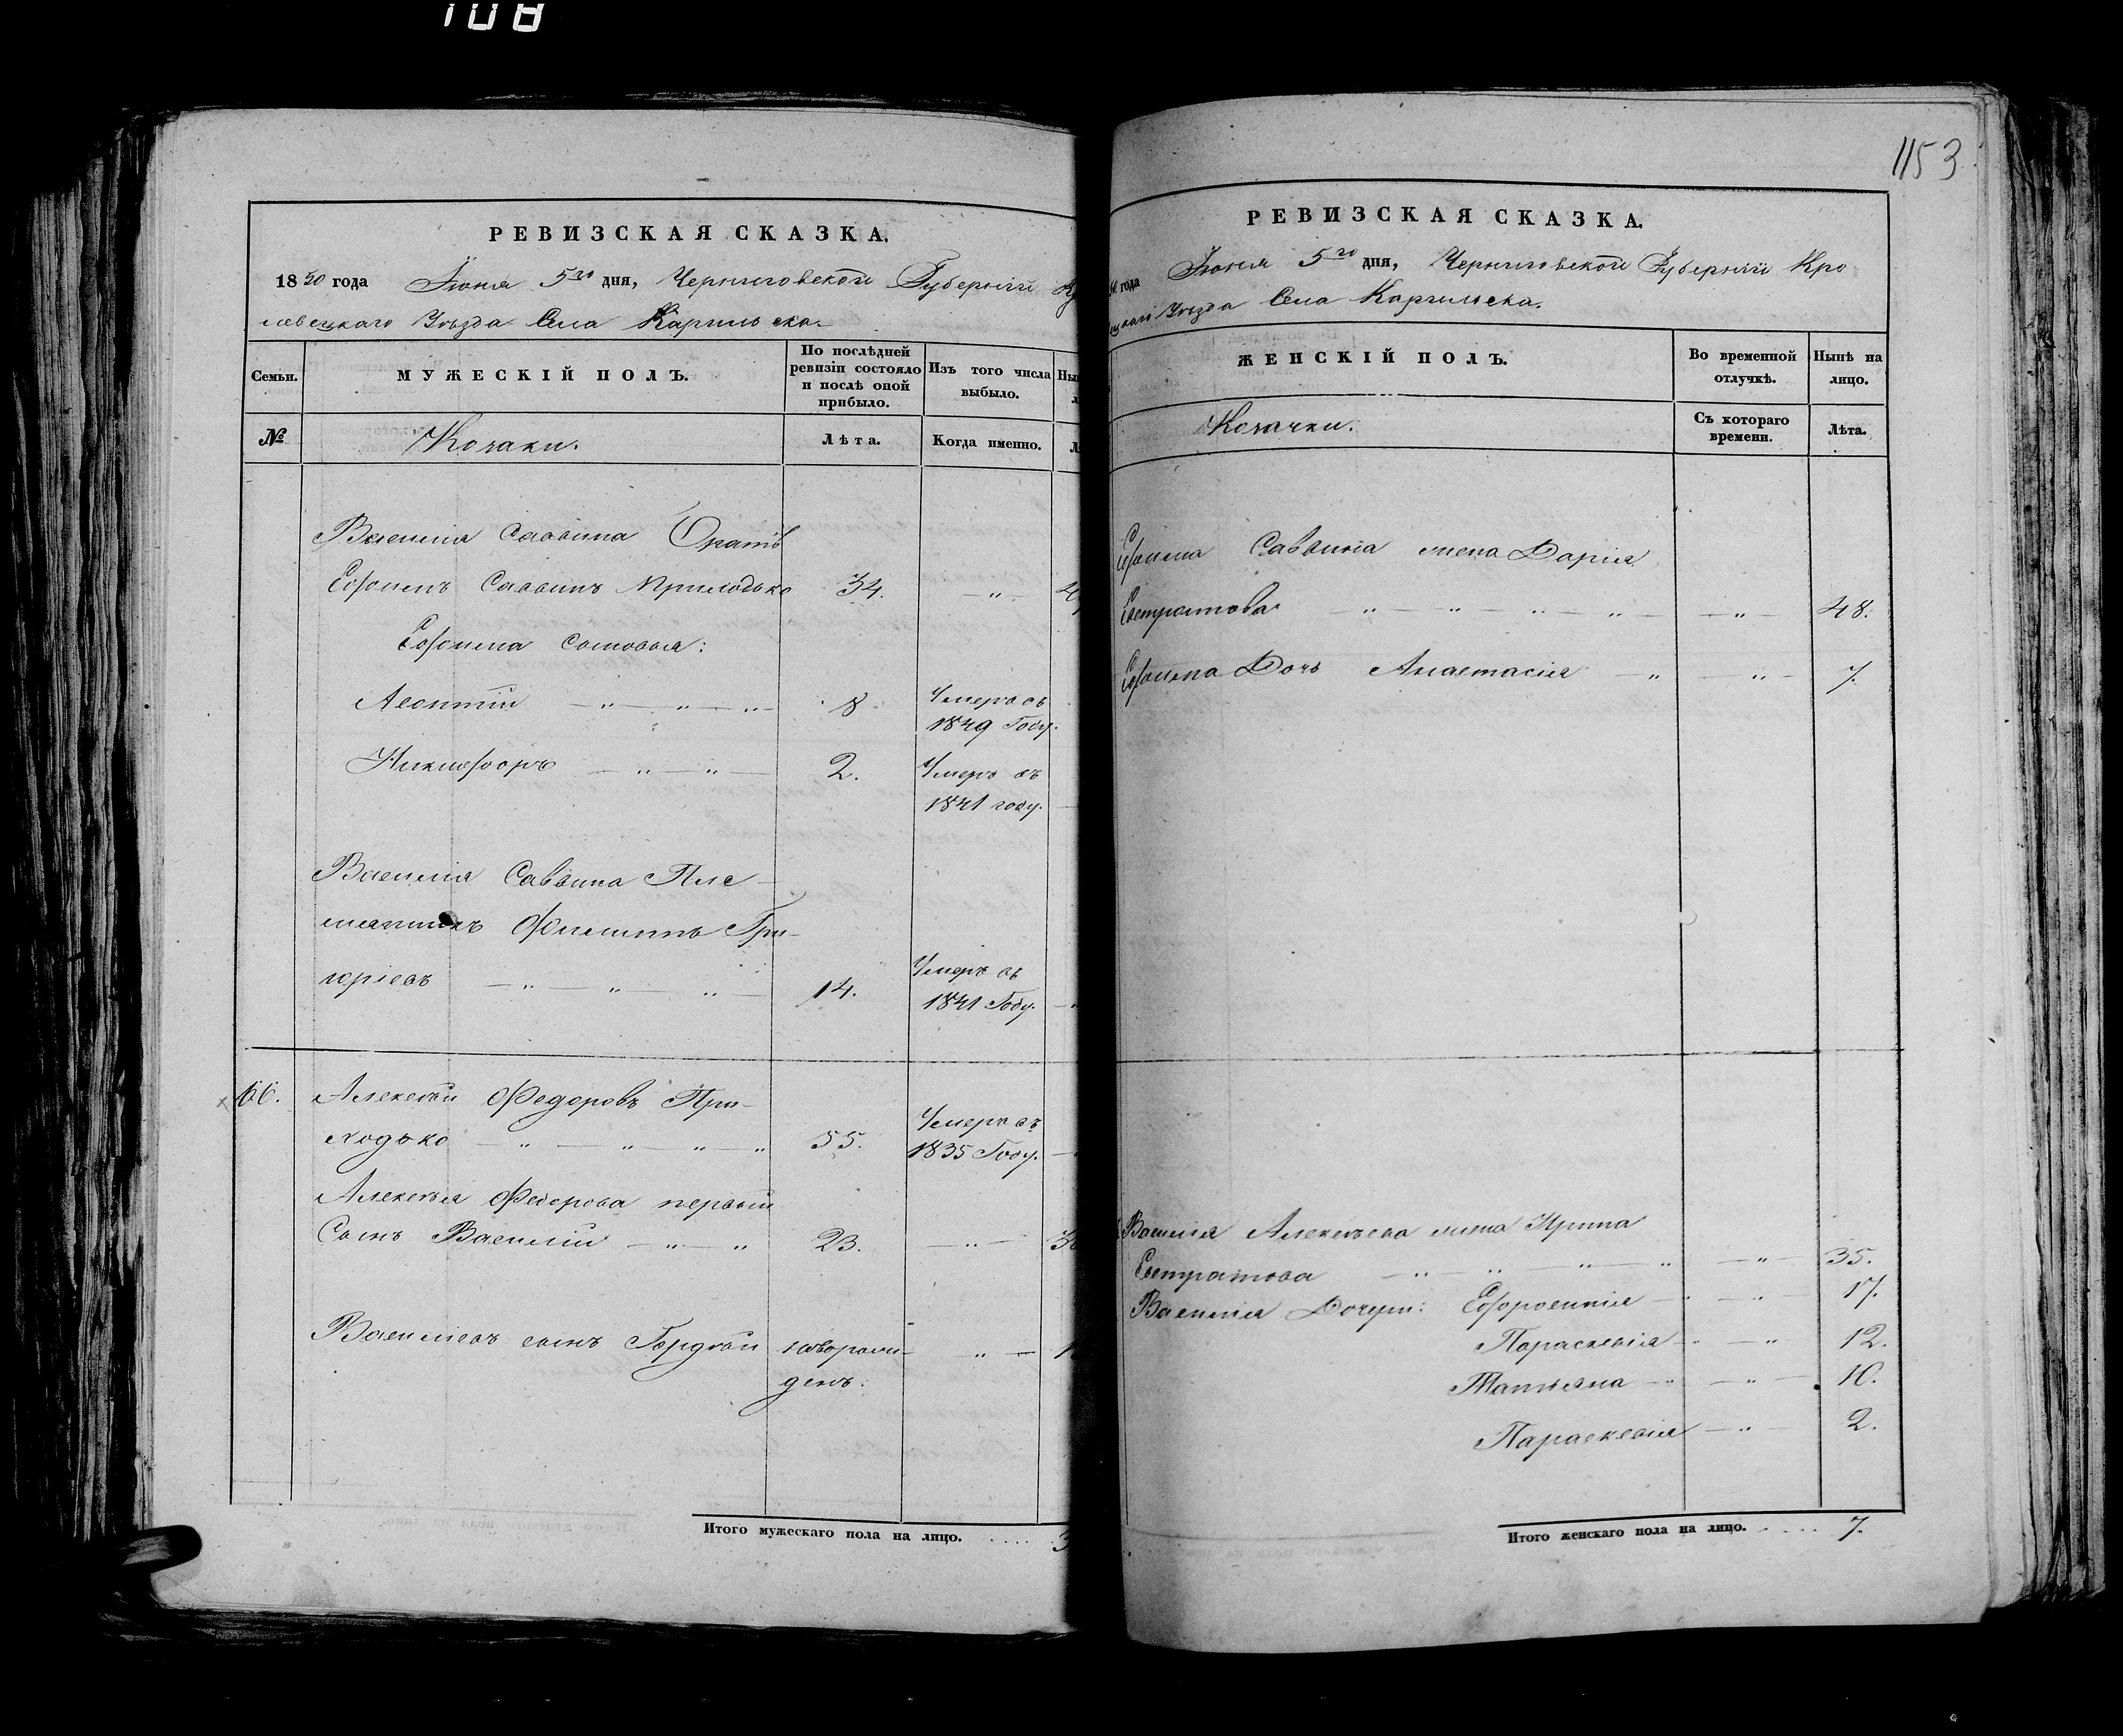 108
РЕВИЗСКАЯ СКАЗКА.
1850 года Іюня 5го дня, Черниговской Губерніи
левецкаго Уѣзда Села Каргильска.
Семьи.
МУЖЕСКІЙ ПОЛЪ.
По послѣдней ревизіи состояло и послѣ оной прибыло.
Изъ того числа выбыло.
№
Козаки.
Лѣта.
Когда именно.
Василія Саввина Братъ
Ефимъ Саввинъ Приходько 34. — „ —
Ефима сыновья:
Леонтій — „ — „ — „ — 8 Умеръ въ
1849 Году.
Никифоръ — „ — „ — 2. Умеръ въ
1841 году.
Василія Саввина Пле-
мянникъ Филиппъ Гри-
горіевъ — „ — „ — „ — 14. Умеръ въ
1841 Году.
66. Алексѣй Федоровъ При-
ходько — „ — „ — „ — „ 55. Умеръ въ
1835 Году.
Алексѣя Федорова первый
Сынъ Василій — „ — „ 23. — „ —
Васильевъ сынъ Гордѣй новорож-
денъ. — „ —
Итого мужескаго пола на лицо. .... 3
1153
РЕВИЗСКАЯ СКАЗКА.
года Іюня 5го дня, Черниговской Губерніи Кро
Уѣзда Села Каргильска.
ЖЕНСКІЙ ПОЛЪ.
Во временной отлучкѣ.
Нынѣ на лицо.
Козачки.
Съ котораго времени.
Лѣта.
Ефима Саввина жена Дарія
Евстратова — „ — „ — „ — „ — — „ — 48.
Ефима Дочь Анастасія — „ — „ — 7.
Василія Алексѣева жена Ирина
Евстратова — „ — „ — „ — „ — „ — 35.
Василія Дочери: Ефросинія — „ — 17.
Параскевія — „ 12.
Татьяна — „ — „ — 10.
Параскевія — „ — 2.
Итого женскаго пола на лицо. ..... 7.